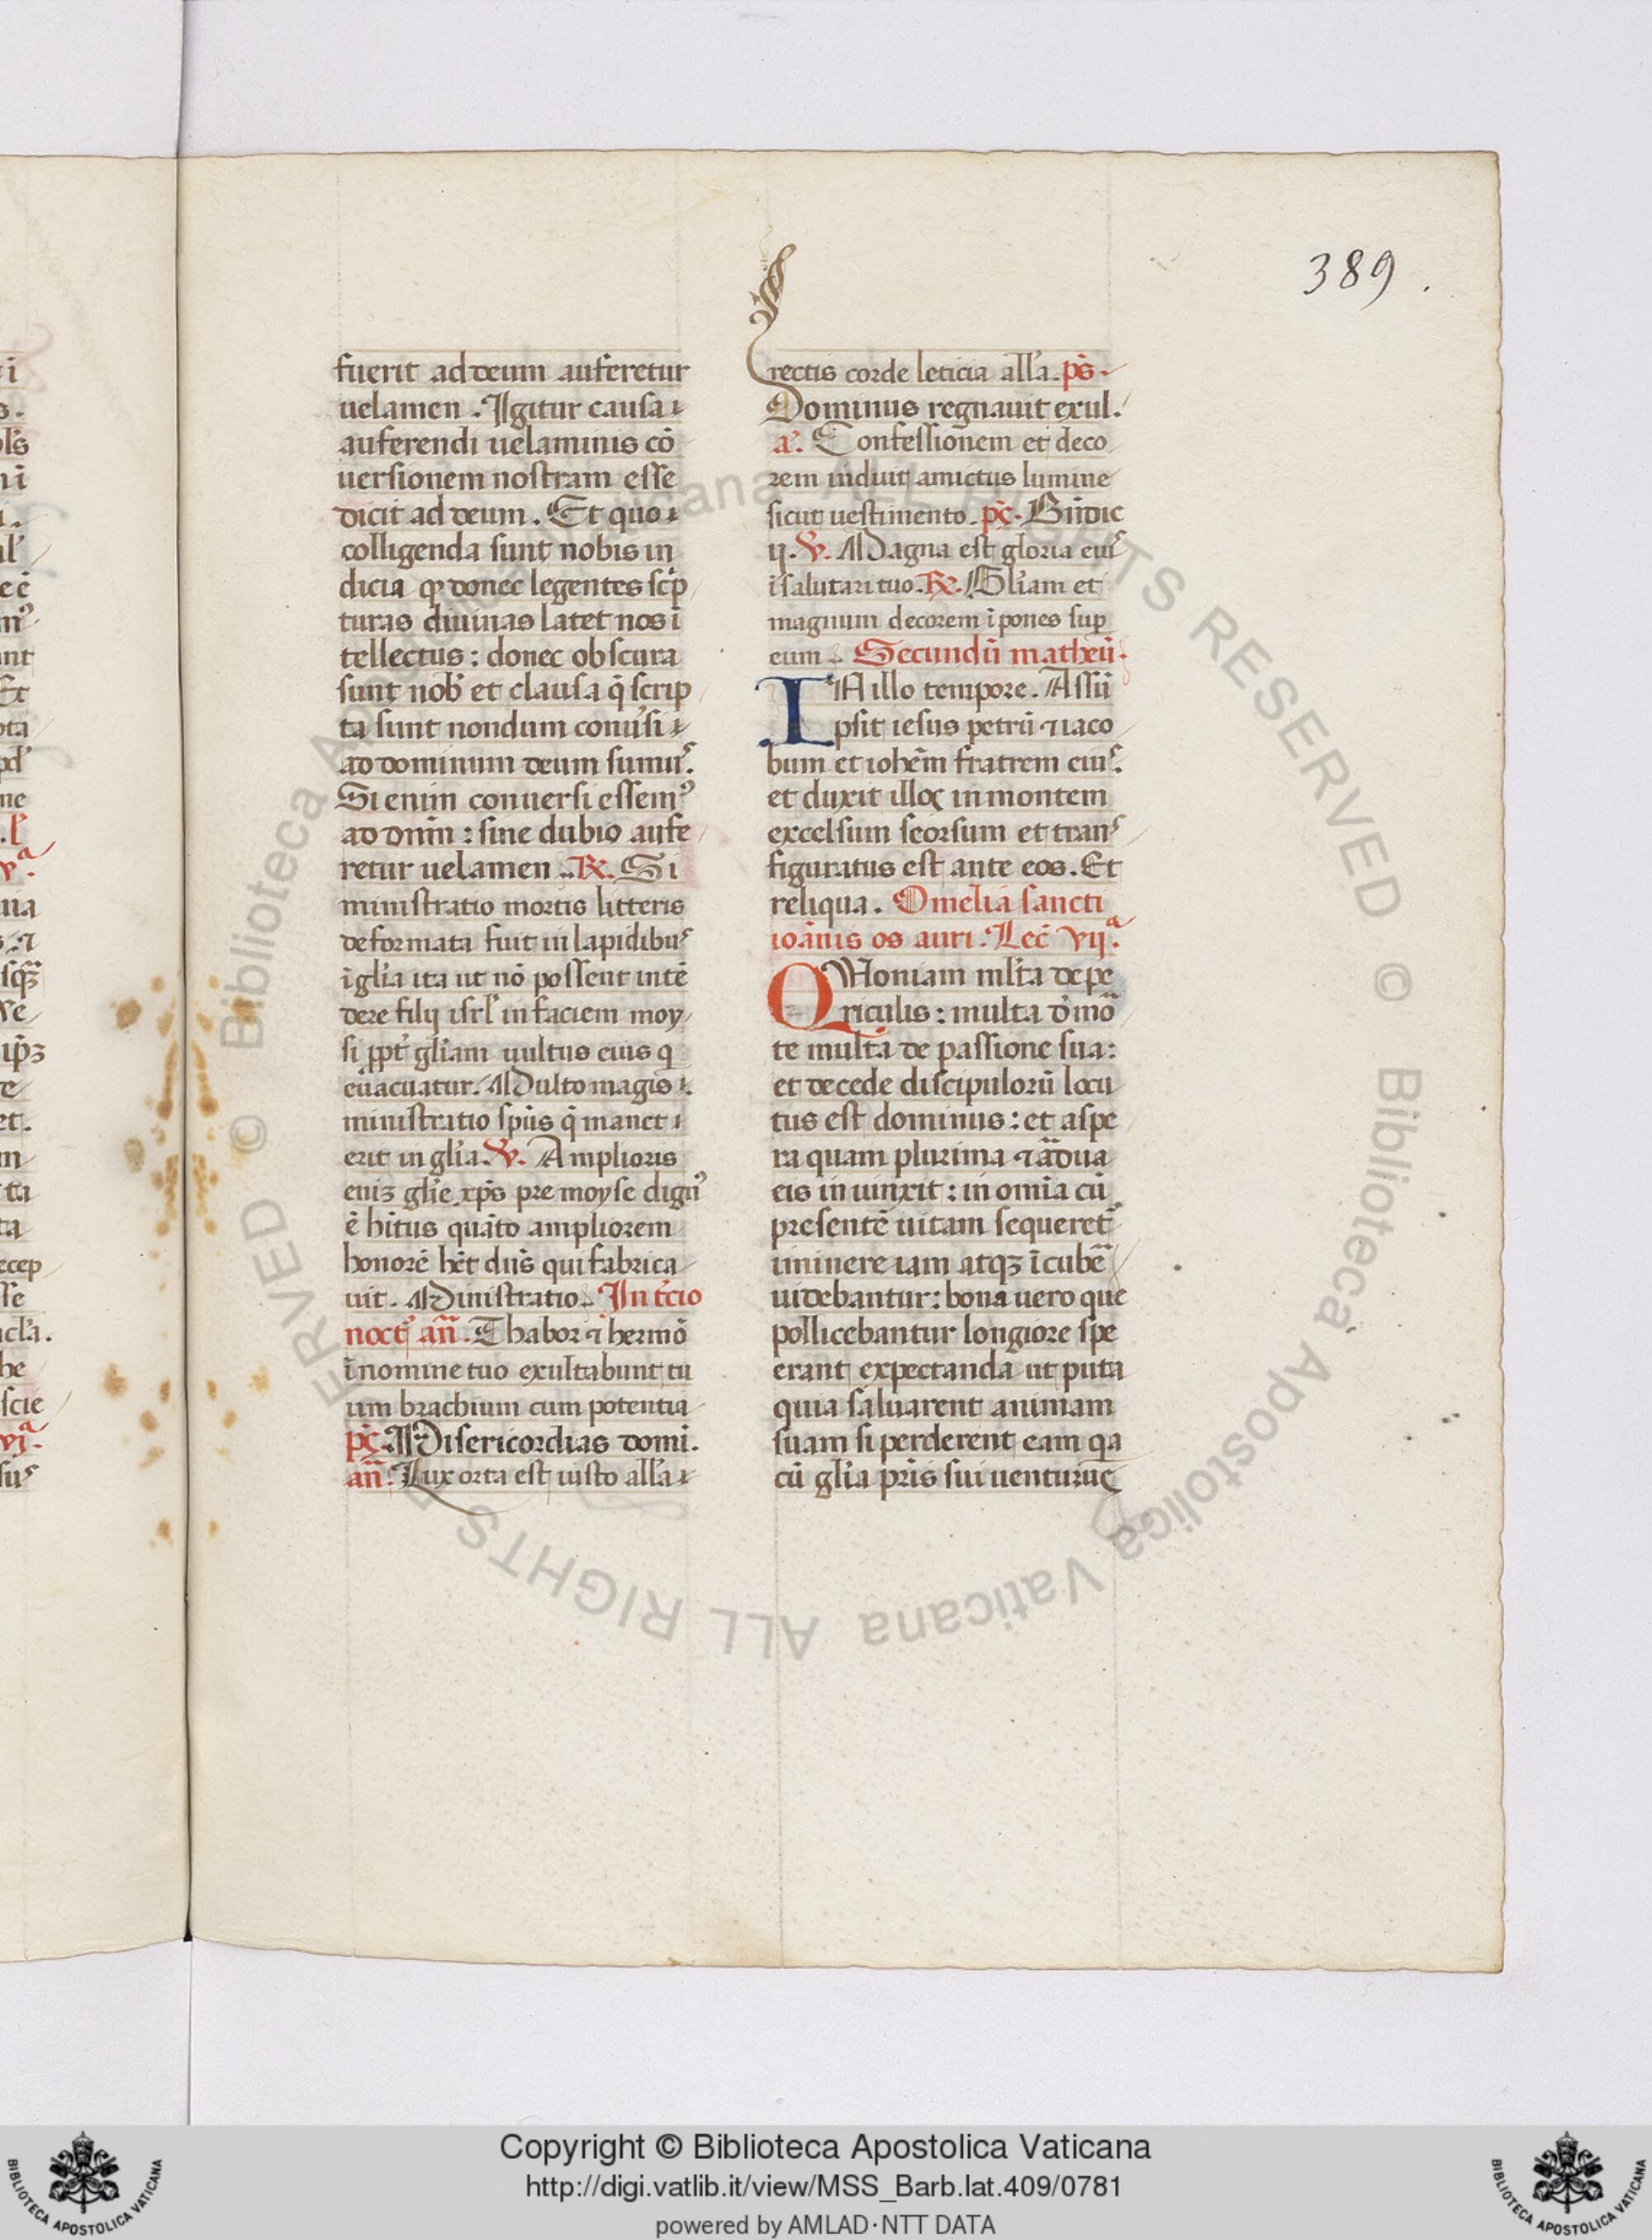 389.
fuerit ad deum auferetur
uelamen. Igitur causa
auferendi uelaminis cō
uersionem nostram esse
dicit ad deum. Et quo
colligenda sunt nobis in
dicia qꝫ donec legentes sc̄p
turas diuinas latet nos ī
tellectus: donec obscura
sunt nob̾ et clausa q̄ scrip
ta sunt nondum conu̾si
ad dominum deum sumꝰ.
Si enim conuersi essemꝰ
ad dnm̄: sine dubio aufe
retur uelamen. ℟. Si
ministratio mortis litteris
deformata fuit in lapidibuꝰ
ī gl̾ia ita ut nō possent intē
dere filij isrl̾ in faciem moy
si ꝓpt̾ gl̾iam uultus eius q
euacuatur. Multo magis
ministratio sp̄us q̄ manet
erit in gl̾ia. ℣. Amplioris
eniꝫ gl̾ie xp̄s pre moyse dignꝰ
ē hītus quāto ampliorem
honorē hēt dn̄s qui fabrica
uit. Ministratio. In t̾cio
noct̾ an̄. Thabor ⁊ hermō
ī nomine tuo exultabunt tu
um brachium cum potentia
ps̄. Misericordias domi.
an̄. Lux orta est iusto all̾a
rectis corde leticia all̾a. ps̄.
Dominus regnauit exul.
a̾. Confessionem et deco
rem induit amictus lumine
sicut uestimento. ps̄. Bn̄dic
ij. ℣. Magna est gloria eiuꝰ
ī salutari tuo. ℟. Gl̾iam et
magnum decorem ī pones sup̱
eum. Secundū matheū.
IN illo tempore. Assū
psit iesus petrū ⁊ iaco
bum et iohēm fratrem eiuꝰ.
et duxit illoꝫ in montem
excelsum seorsum et tranꝰ
figuratus est ante eos. Et
reliqua. Omelia sancti
ioānis os auri. Lec̄ vijᵃ.
QVoniam ml̾ta de pe
riculis: multa d̾ mō
te multa de passione sua:
et de cede discipulorū locu
tus est dominus: et aspe
ra quam plurima ⁊ adua
eis in uinxit: in omīa cū
presentē uitam sequeret̾
iminere iam atqꝫ ī cubē
uidebantur: bona uero que
pollicebantur longiore spe
erant expectanda ut puta
quia saluarent animam
suam si perderent eam qa
cū gl̾ia pr̄is sui uenturuꝰ
Copyright © Biblioteca Apostolica Vaticana
http://digi.vatlib.it/view/MSS_Barb.lat.409/0781
powered by AMLAD·NTT DATA
BIBLIOTECA APOSTOLICA VATICANA
BIBLIOTECA APOSTOLICA VATICANA
© Biblioteca Apostolica Vaticana ALL RIGHTS RESERVED © Biblioteca Apostolica Vaticana ALL RIGHTS RESERVED